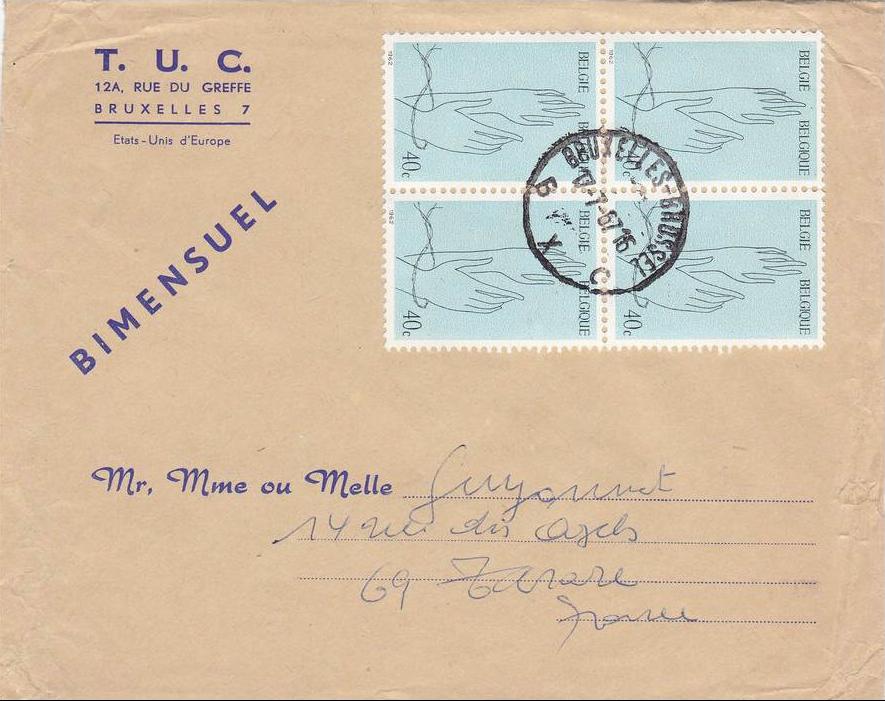 T. U. C.
12A, RUE DU GREFFE
BRUXELLES 7
Etats-Unis d'Europe
BIMENSUEL
1962
BELGIE BELGIQUE
40c
BELGIE BELGIQUE
40c
1962
BELGIE BELGIQUE
40c
BELGIE BELGIQUE
40c
BRUXELLES-BRUSSEL
-7-67 16
B X C
Mr, Mme ou Melle Guyonnet
14 rue des
69 Tarare
France